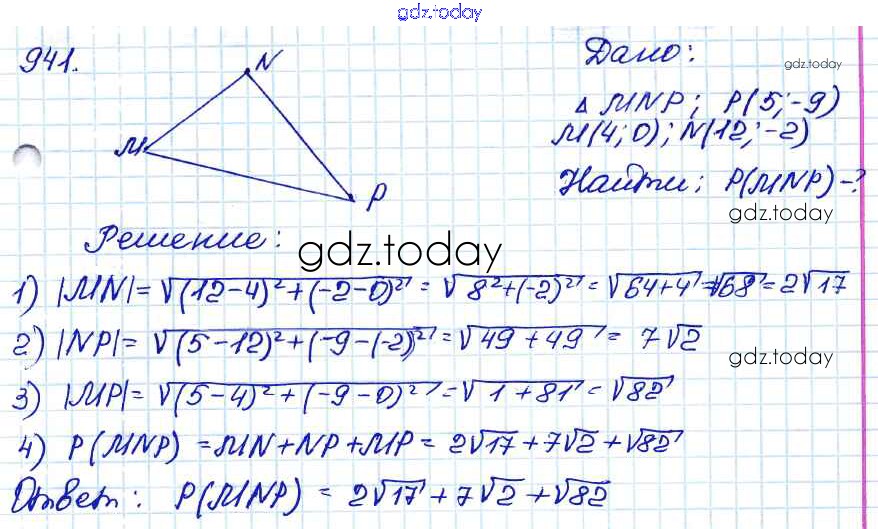 gdz.today
941.
N
M
P
Дано:
gdz.today
△ MNP; P(5;-9)
M(4;0); N(12;-2)
Найти: P(MNP)-?
gdz.today
Решение:
gdz.today
1) |MN|= √((12-4)²+(-2-0)²) = √(8²+(-2)²) = √(64+4) = √68 = 2√17
2) |NP|= √((5-12)²+(-9-(-2))²) = √(49+49) = 7√2
gdz.today
3) |MP|= √((5-4)²+(-9-0)²) = √(1+81) = √82
4) P(MNP) = MN+NP+MP = 2√17+7√2+√82
Ответ: P(MNP) = 2√17+7√2+√82